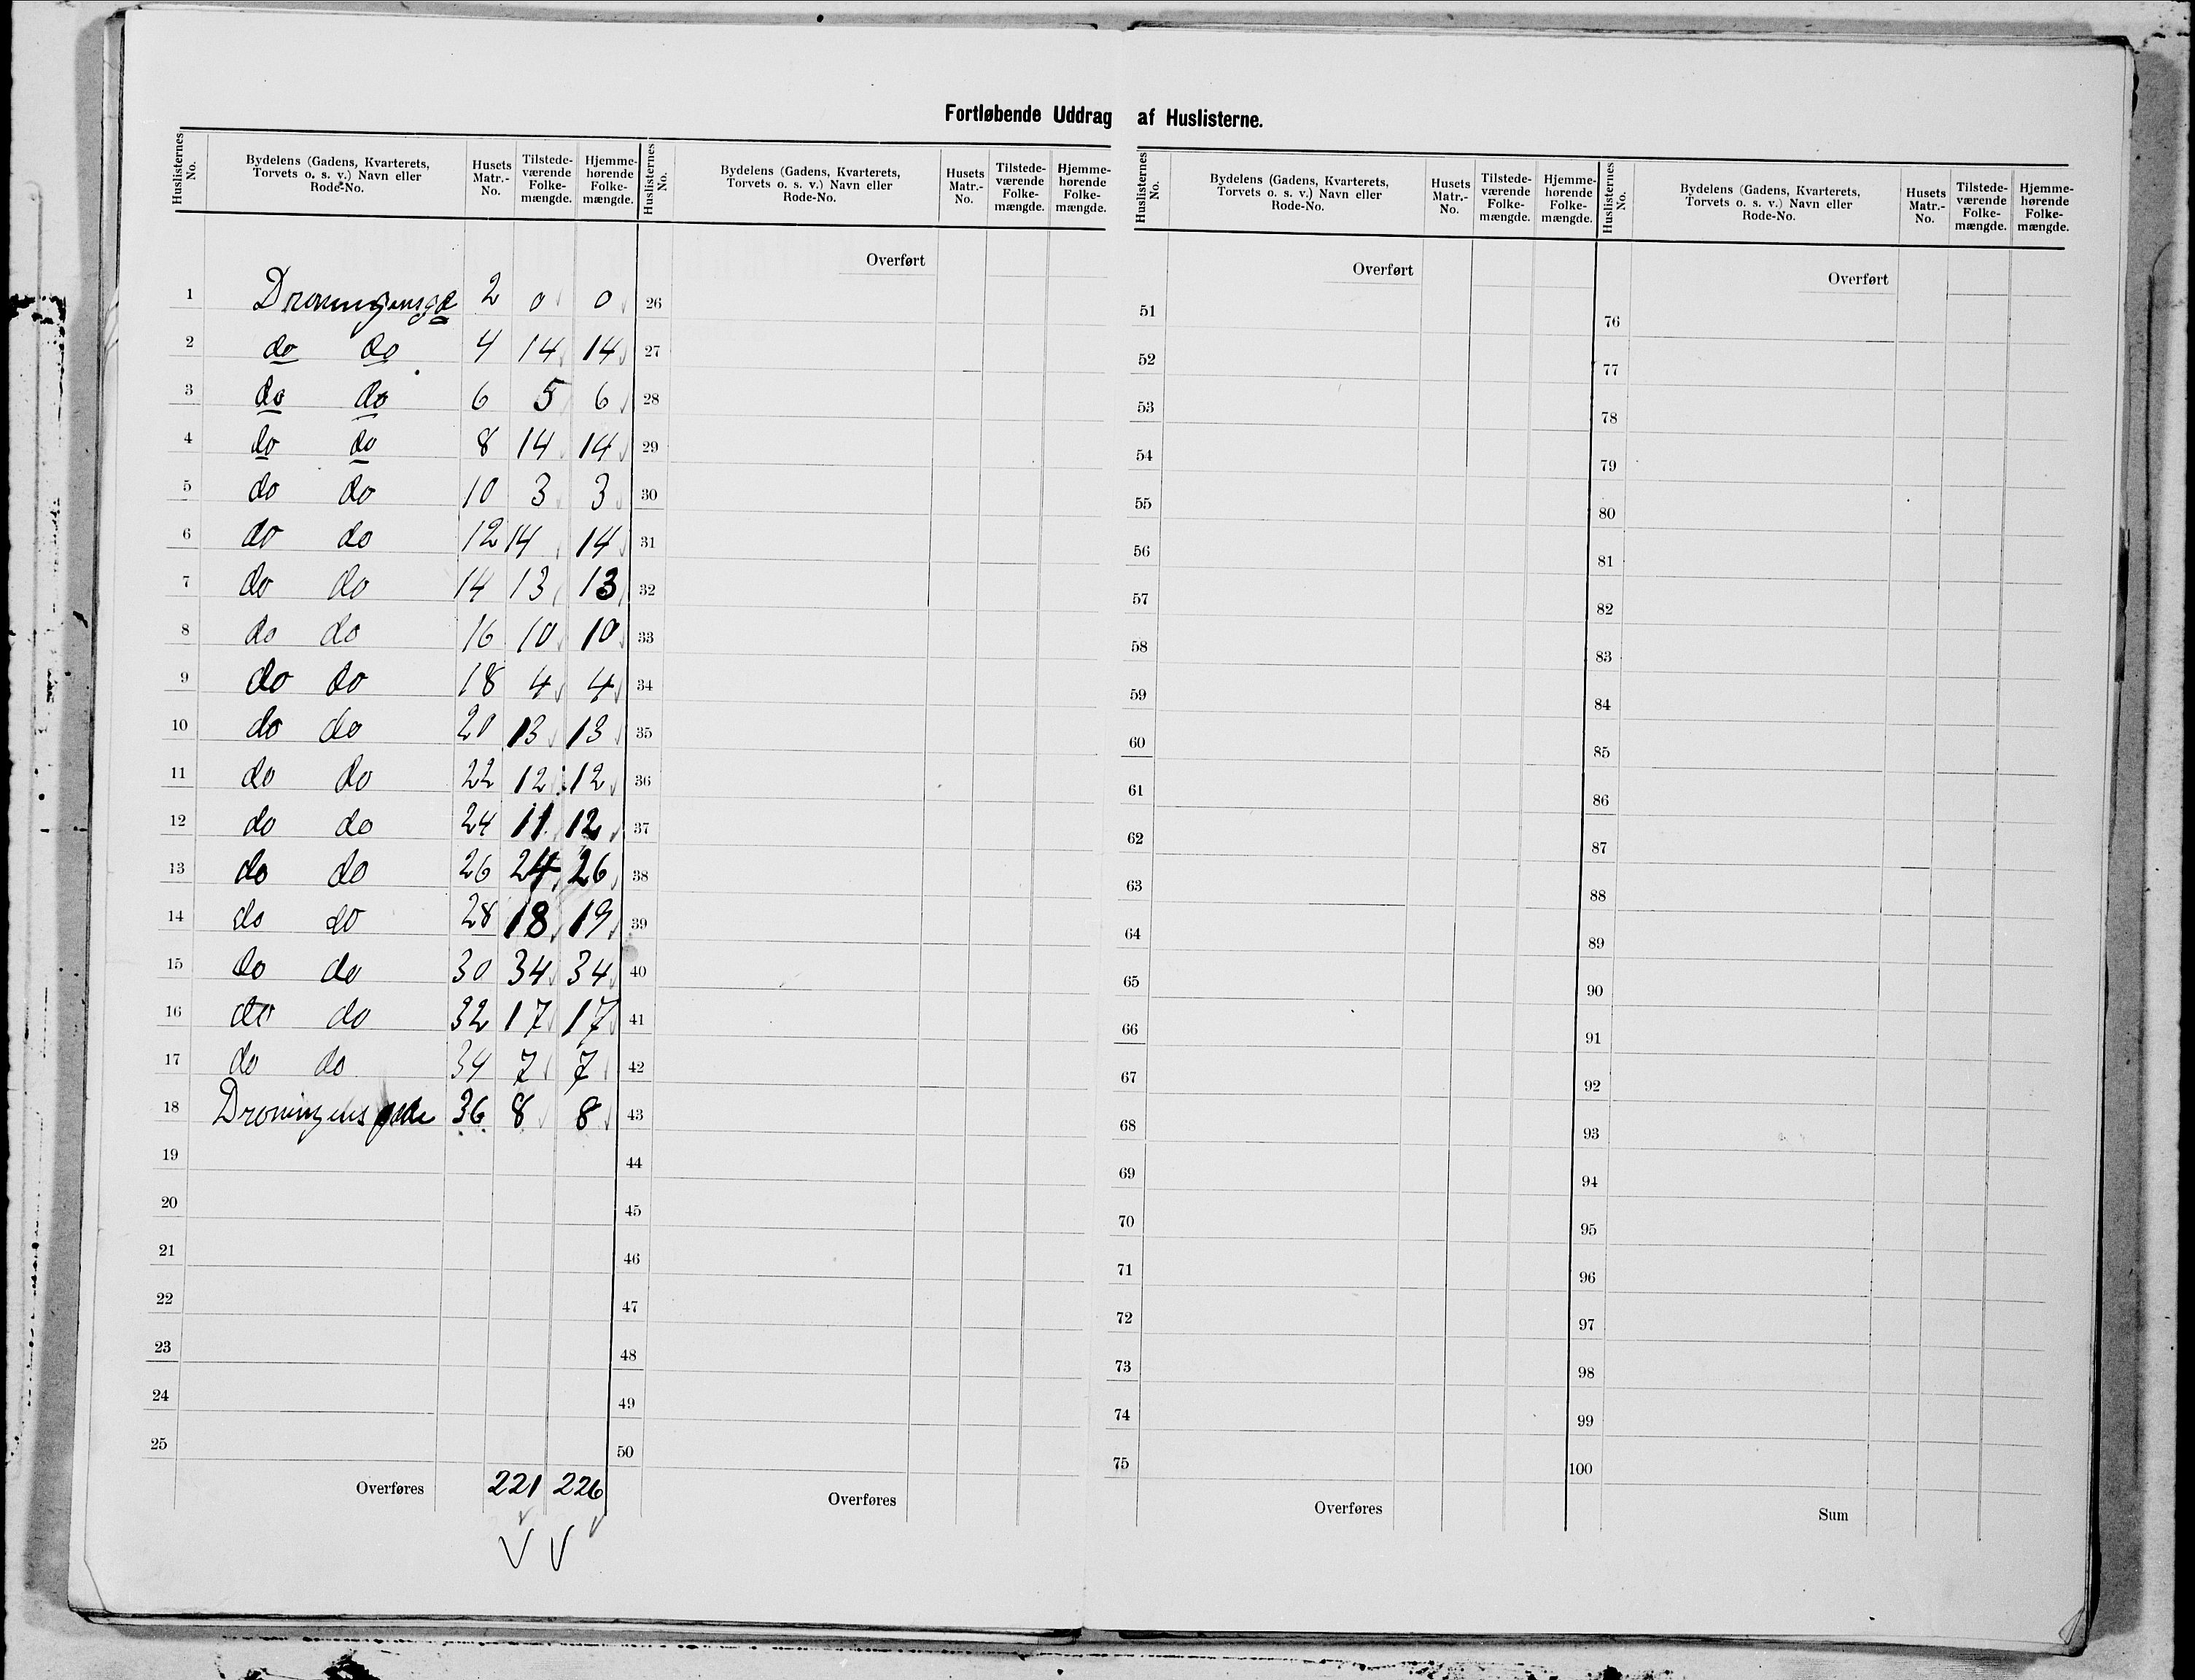 Fortløbende Uddrag af Huslisterne.
Huslisternes No. Bydelens (Gadens, Kvarterets, Torvets o. s. v.) Navn eller Rode-No. Husets Matr.-No. Tilstedeværende Folkemængde. Hjemmehørende Folkemængde. Huslisternes No. Bydelens (Gadens, Kvarterets, Torvets o. s. v.) Navn eller Rode-No. Husets Matr.-No. Tilstedeværende Folkemængde. Hjemmehørende Folkemængde. Huslisternes No. Bydelens (Gadens, Kvarterets, Torvets o. s. v.) Navn eller Rode-No. Husets Matr.-No. Tilstedeværende Folkemængde. Hjemmehørende Folkemængde. Huslisternes No. Bydelens (Gadens, Kvarterets, Torvets o. s. v.) Navn eller Rode-No. Husets Matr.-No. Tilstedeværende Folkemængde. Hjemmehørende Folkemængde.
Overført Overført Overført
1 Droningensge 2 0 0 26 51 76
2 do do 4 14 14 27 52 77
3 do do 6 5 6 28 53 78
4 do do 8 14 14 29 54 79
5 do do 10 3 3 30 55 80
6 do do 12 14 14 31 56 81
7 do do 14 13 13 32 57 82
8 do do 16 10 10 33 58 83
9 do do 18 4 4 34 59 84
10 do do 20 13 13 35 60 85
11 do do 22 12 12 36 61 86
12 do do 24 11 12 37 62 87
13 do do 26 24 26 38 63 88
14 do do 28 18 19 39 64 89
15 do do 30 34 34 40 65 90
16 do do 32 17 17 41 66 91
17 do do 34 7 7 42 67 92
18 Droningens 36 8 8 43 68 93
19 44 69 94
20 45 70 95
21 46 71 96
22 47 72 97
23 48 73 98
24 49 74 99
25 50 75 100
Overføres 221 226 Overføres Overføres Sum